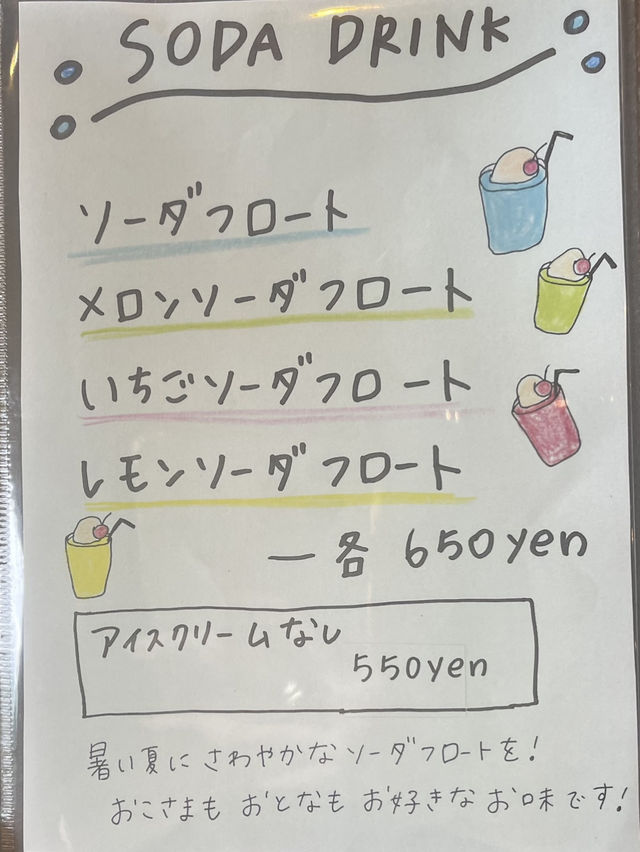 SODA DRINK
ソーダフロート
メロンソーダフロート
いちごソーダフロート
レモンソーダフロート
ー各 650yen
アイスクリームなし
550yen
暑い夏にさわやかなソーダフロートを!
おこさまも おとなも お好きな お味です!